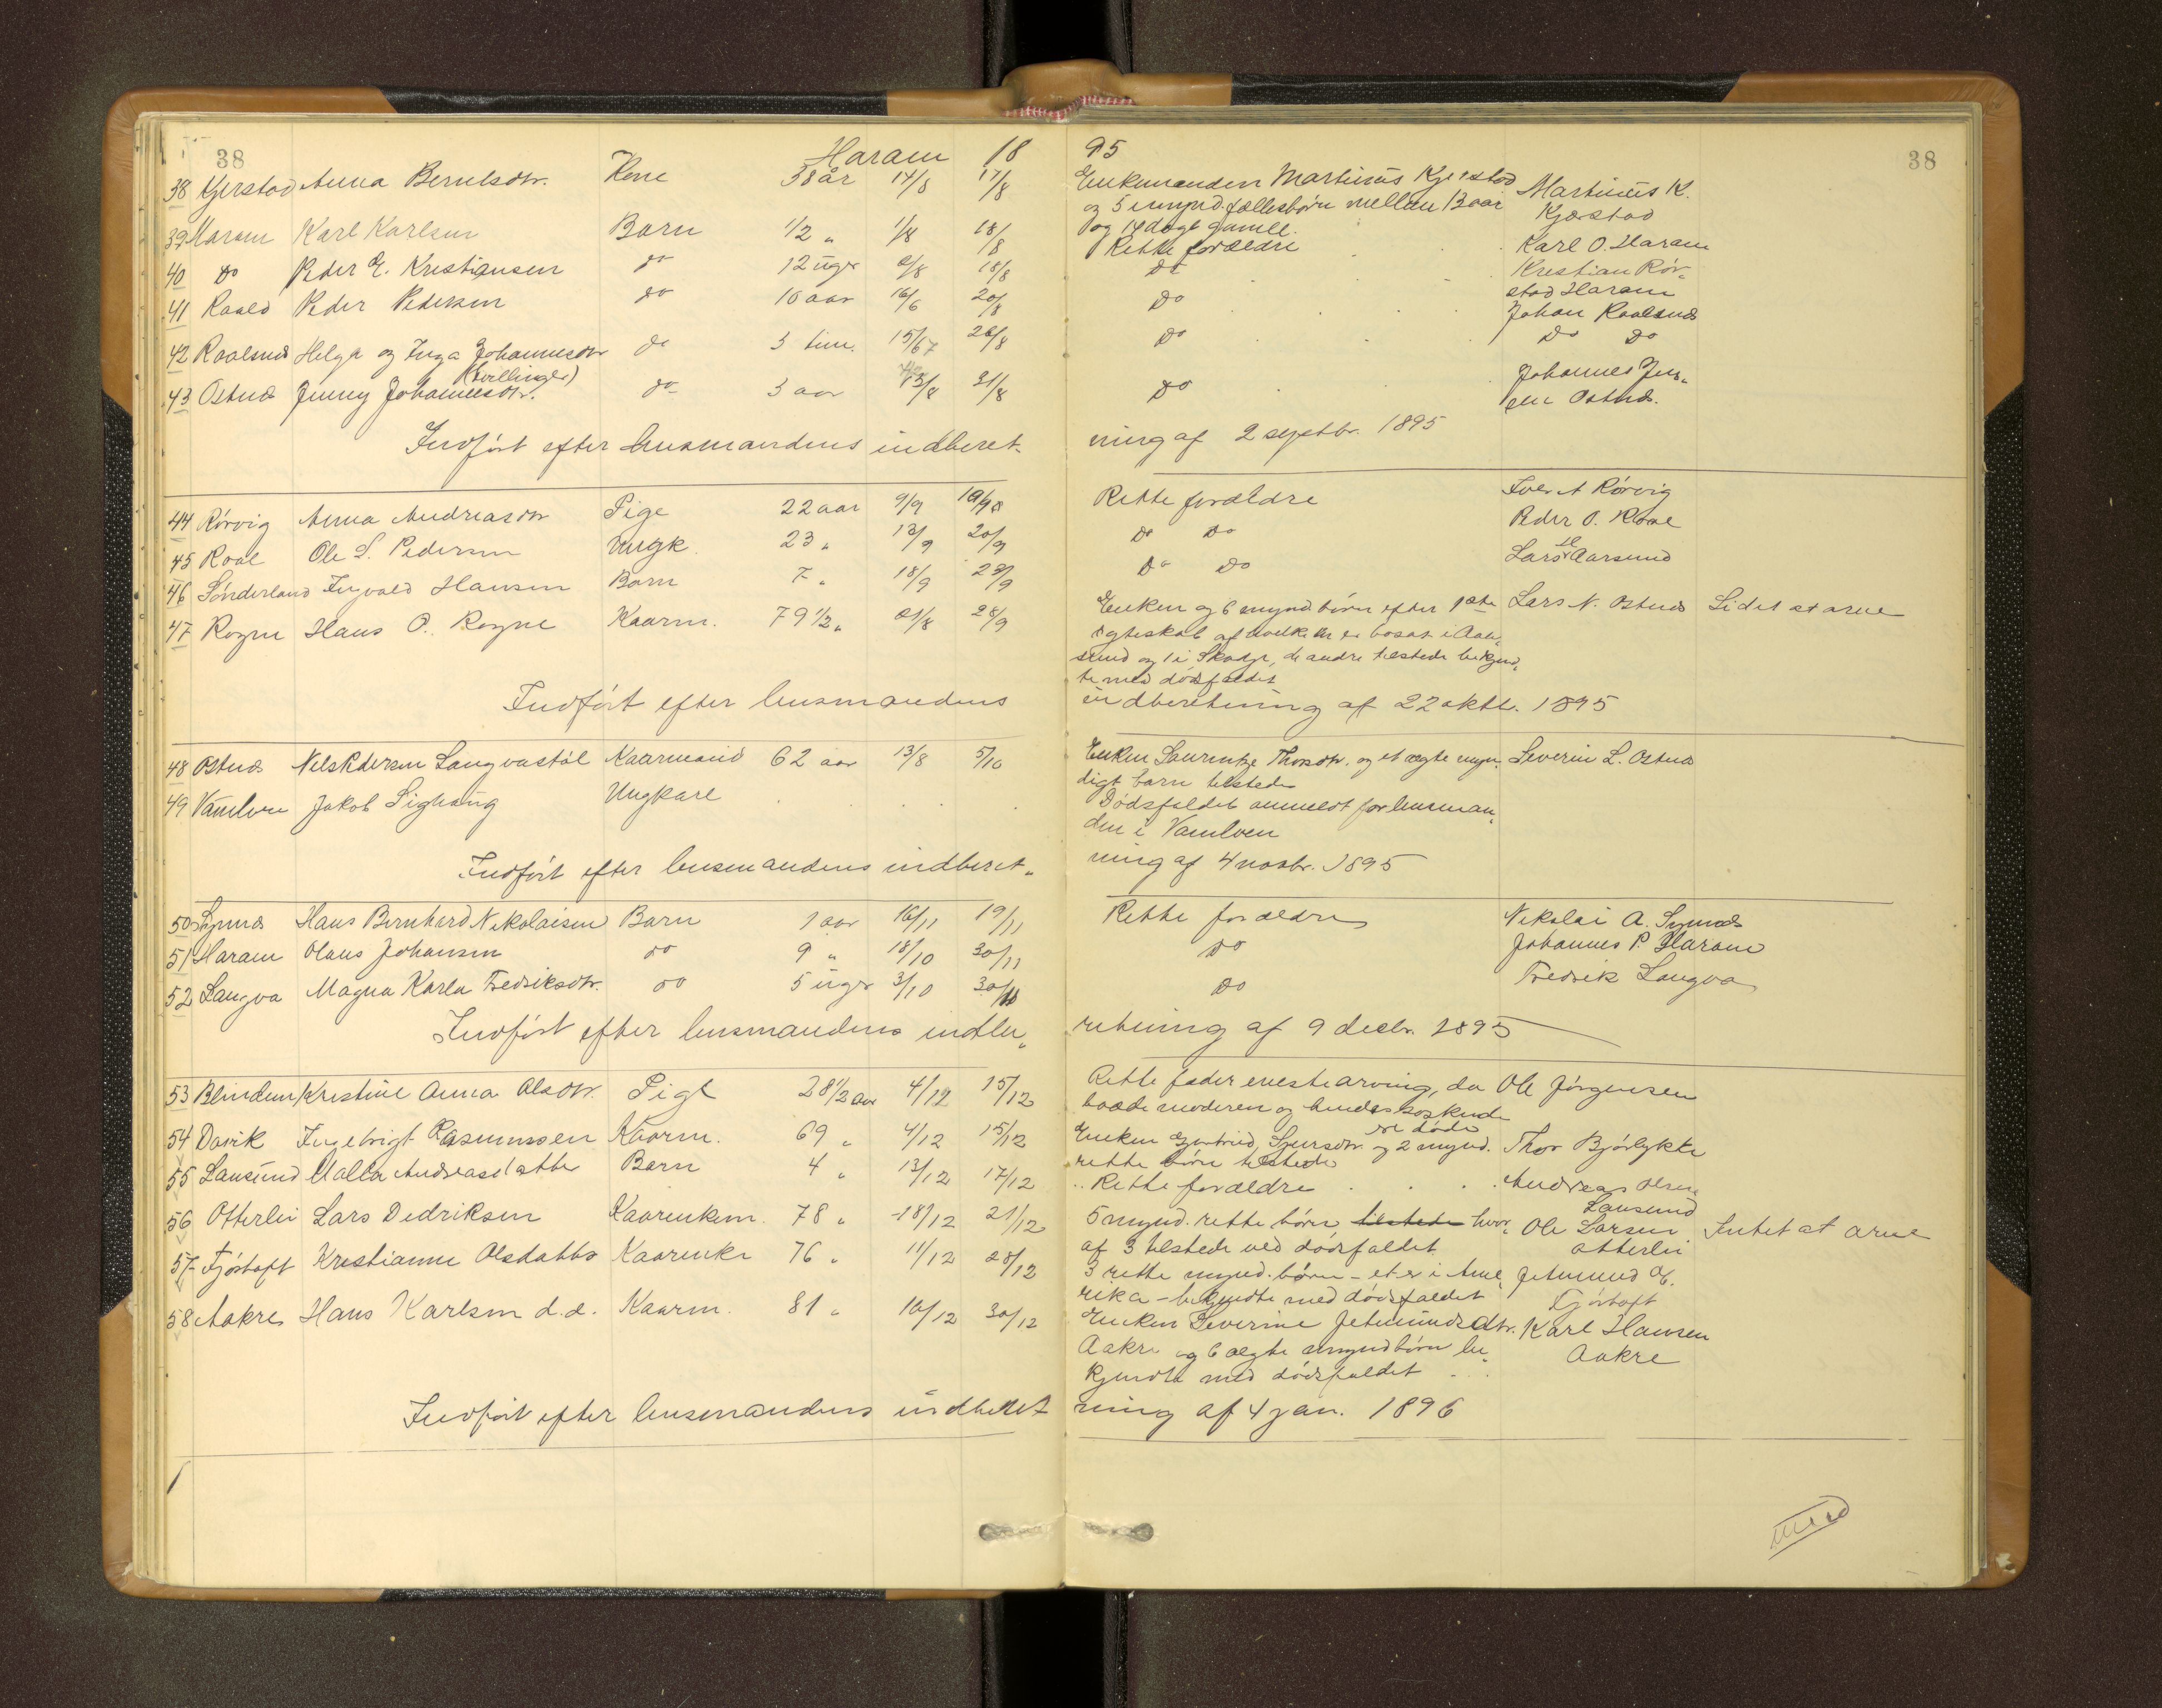 38 Haram 18 95 38
38 Kjerstad Anna Berntsdtr. Kone 38 år 14/8 17/8 Enkemanden Martinus Kjerstad Martinus K.
og 5 umynd. fællesbørn mellem 13 aar Kjærstad
og 14 dage gamle.
39 Haram Karl Karlsen Barn 1/2 " 1/8 18/8 Rette forældre Karl O. Haram
40 Do Peder E. Kristiansen do 12 uger 2/8 18/8 Do Krestian Rør-
stad Haram
41 Roald Peder Pedersen do 10 aar 16/6 20/8 Do Johan Roalsnes
42 Roalsnes Helga og Inga Johannesdtr do 3 tim. 15/67 26/8 Do Do Do
(tvillinger)
43 Østnes Jenny Johannesdtr. do 3 aar 13/8 31/8 Do Johannes Jen-
sen Østnes.
Indført efter lensmandens indberet- ning af 2 septbr. 1895
44 Rørvig Anna Andreasdtr Pige 22 aar 9/9 19/9 Rette forældre Iver A Rørvig
45 Roal Ole S. Pedersen Ungk. 23 " 13/9 20/9 Do Do Peder O. Roal
46 Sønderland Ingvald Hansen Barn 7 " 18/9 23/9 Do Do Lars Aarsund
47 Rogne Hans O. Rogne Kaarm. 79 1/2 " 21/8 28/9 Enken og 6 mynd. børn efter 1ste Lars N. Østnes Lidet at arve
ægteskab af hvilke en er bosat i Aale-
sund og 1 i Skodje, de andre tilstede bekjend-
te med dødsfaldet
Indført efter lensmandens indberetning af 22 oktb. 1895
48 Østnes Nels Pedersen Langvastøl Kaarmand 62 aar 13/8 5/10 Enken Laurentze Thorsdtr. og et ægte myn- Severin L. Østnes
digt barn tilstede
49 Vanelven Jakob Sighaug Ungkarl Dødsfaldet anmeldt for lensman-
den i Vanelven
Indført efter lensmandens indberet- ning af 4 novbr. 1895
50 Synnes Hans Bernhard Nikolaisen Barn 1 aar 16/11 19/11 Rette forældre Nikolai A. Synnes
51 Haram Olaus Johansen do 9 " 18/10 30/11 Do Johannes P. Haram
52 Langva Magna Karla Fredriksdtr. do 5 uger 3/10 30/11 Do Fredrik Langva
Indført efter lensmandens indbe- retning af 9 decbr. 1895
53 Blindem Kristine Anna Olsdtr. Pige 28 1/2 aar 4/12 15/12 Rette fader enestearving, da Ole Jørgensen
baade moderen og hendes søskende
er døde
54 Davik Ingebrigt Rasmussen Kaarm. 69 " 4/12 15/12 Enken Gjertrud Sjursdtr. og 2 mynd. Thor Bjørlykke
rette børn tilstede
55 Lausund Malla Andreasdatter Barn 4 " 13/12 17/12 Rette forældre Andreas Olsen
Lausund
56 Otterlei Lars Dedriksen Kaarenkem. 78 " 18/12 21/12 5 mynd. rette børn tilstede hvor- Ole Larsen Intet at arve
af 3 tilstede ved dødsfaldet Otterlei
57 Fjørtoft Krestianne Olsdatter Kaarenke 76 " 11/12 28/12 3 rette mynd. børn - et er i Ame- Jetmund E.
rika - bekjendte med dødsfaldet Fjørtoft
58 Aakre Hans Karlsen d.e. Kaarm. 81 " 10/12 30/12 Enken Severine Jetmundsdtr. Karl Hansen
Aakre og 6 ægte mynd børn be- Aakre
kjendte med dødsfaldet
Indført efter lensmandens indberet ning af 4 jan. 1896